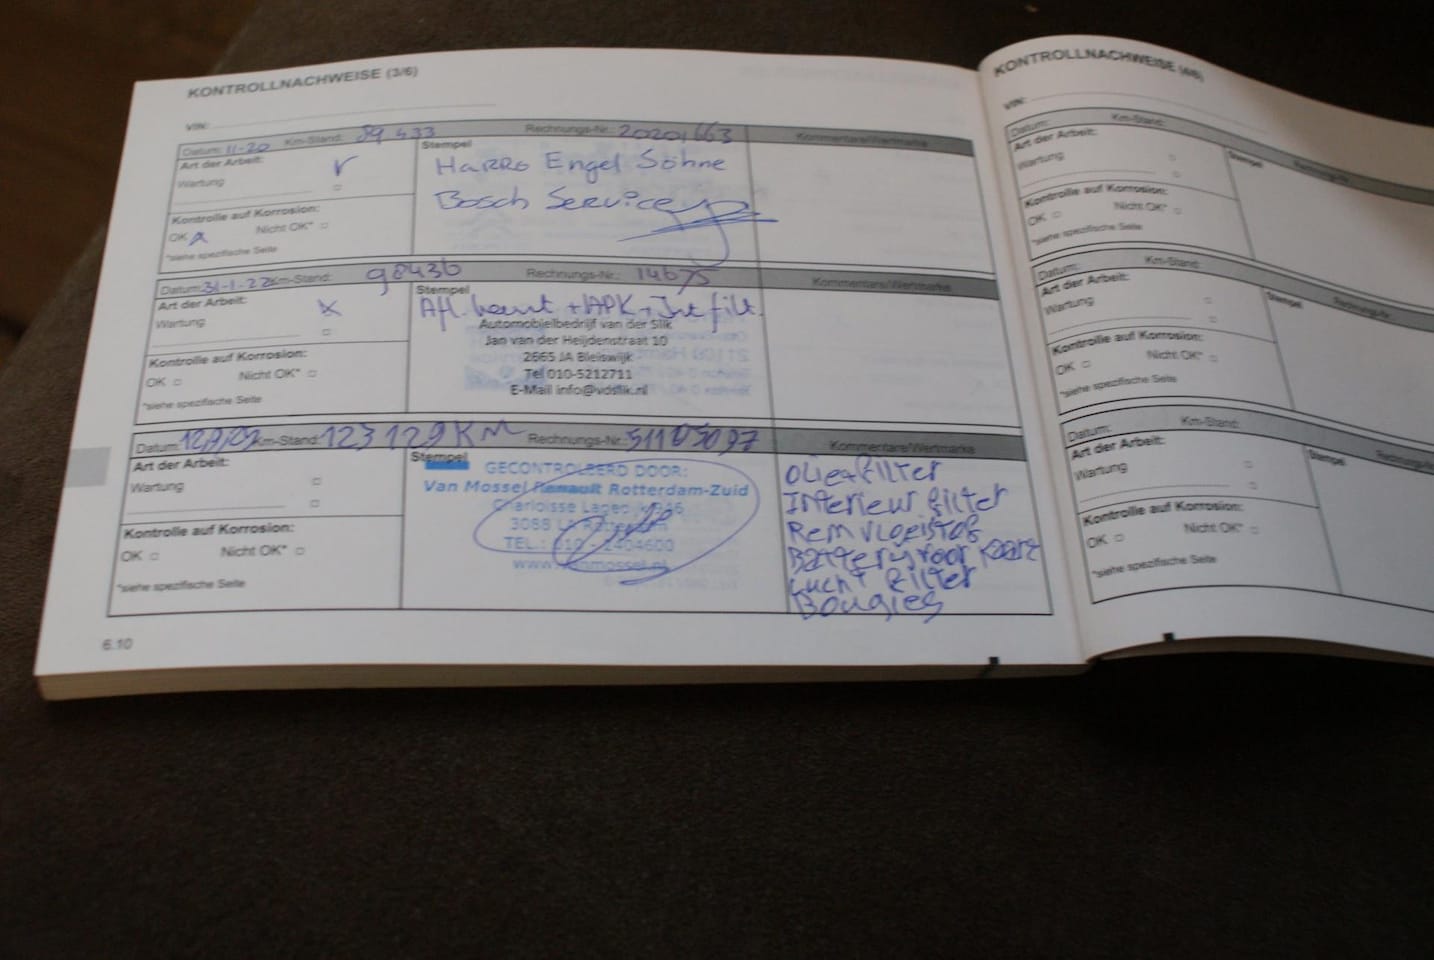 KONTROLLNACHWEISE (3/6)
VIN:
Datum: 11-20 Km-Stand: 89 433 Rechnungs-Nr.: 20201663 Kommentare/Wertmarke
Art der Arbeit:
Wartung
Stempel
Harro Engel Söhne
Bosch Service
Kontrolle auf Korrosion:
OK Nicht OK*
*siehe spezifische Seite
Datum: 31-1-22 Km-Stand: 98436 Rechnungs-Nr.: 14675 Kommentare/Wertmarke
Art der Arbeit:
Wartung
Stempel
Afl. beurt + APK + Int filt.
Automobielbedrijf van der Slik
Jan van der Heijdenstraat 10
2665 JA Bleiswijk
Tel 010-5212711
E-Mail info@vdslik.nl
Kontrolle auf Korrosion:
OK Nicht OK*
*siehe spezifische Seite
Datum: Km-Stand: 123 129 KM Rechnungs-Nr.: Kommentare/Wertmarke
Art der Arbeit:
Wartung
Kontrolle auf Korrosion:
OK Nicht OK*
*siehe spezifische Seite
Stempel
GECONTROLEERD DOOR:
Van Mossel Renault Rotterdam-Zuid
3088
TEL.: 010 - 2404600
www.vanmossel.nl
Olie+filter
Interieur filter
Remvloeistof
Batterij voor kaart
Lucht filter
Bougies
6.10
KONTROLLNACHWEISE (4/6)
VIN:
Datum: Km-Stand: Rechnungs-Nr.
Art der Arbeit:
Wartung
Stempel
Kontrolle auf Korrosion:
OK Nicht OK*
*siehe spezifische Seite
Datum: Km-Stand: Rechnungs-Nr.
Art der Arbeit:
Wartung
Stempel
Kontrolle auf Korrosion:
OK Nicht OK*
*siehe spezifische Seite
Datum: Km-Stand: Rechnungs-Nr.
Art der Arbeit:
Wartung
Stempel
Kontrolle auf Korrosion:
OK Nicht OK*
*siehe spezifische Seite